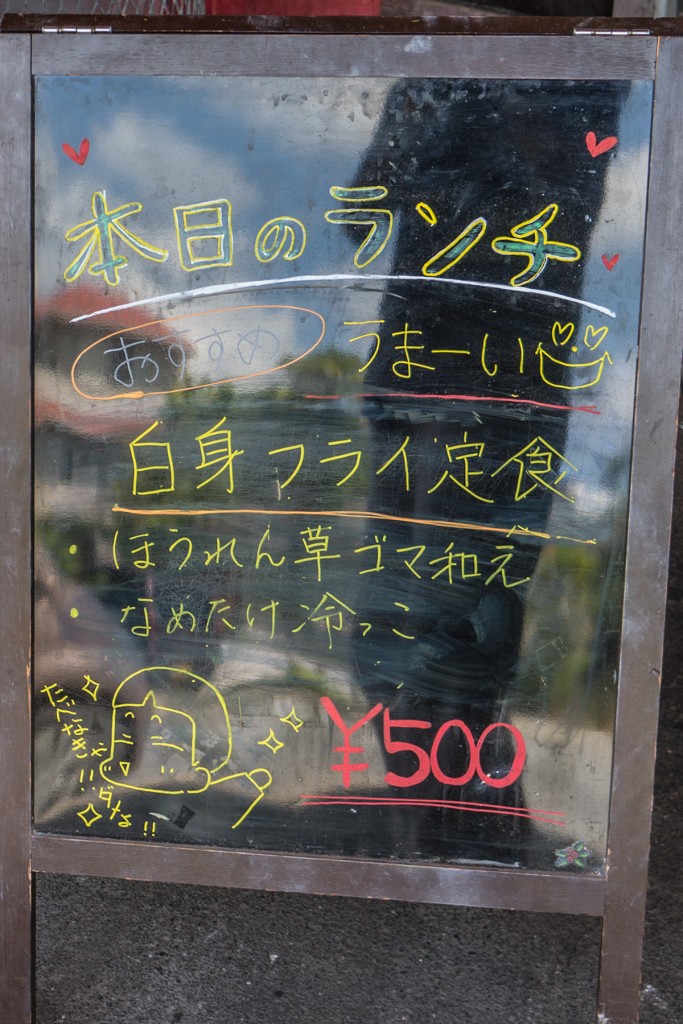 本日のランチ
おすすめ うまーい
白身フライ定食
・ほうれん草ゴマ和え
・なめたけ冷っこ
¥500
たべなきゃ!!
ダナよ!!